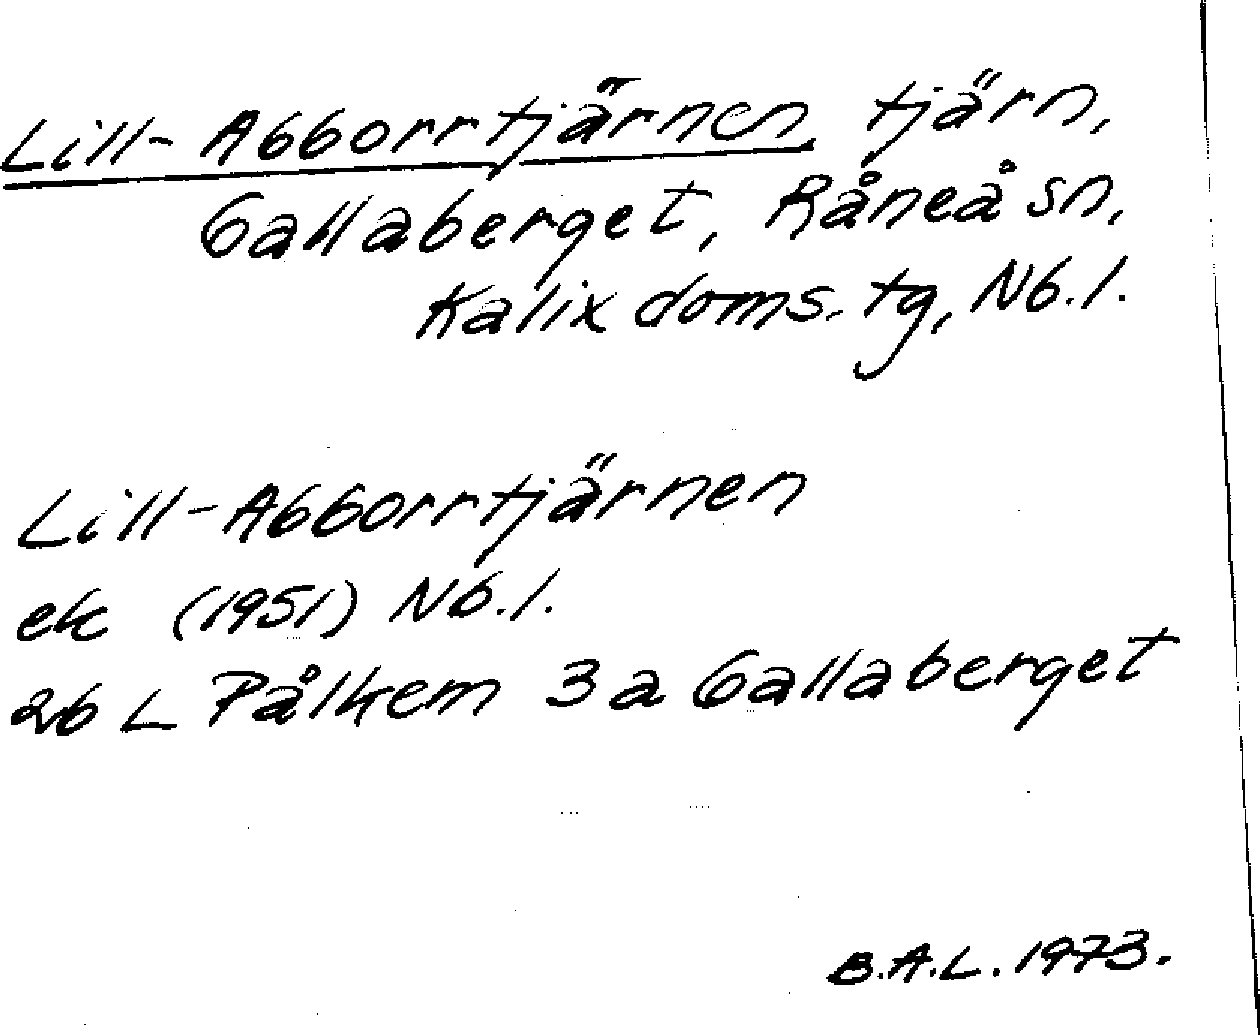 Lill-Abborrtjärnen, tjärn,
Gallaberget, Råneå sn,
Kalix doms. tg, Nb. l.
Lill-Abborrtjärnen
ek (1951) Nb. l.
26 L Pålkem 3 a Gallaberget
B.A.L. 1973.